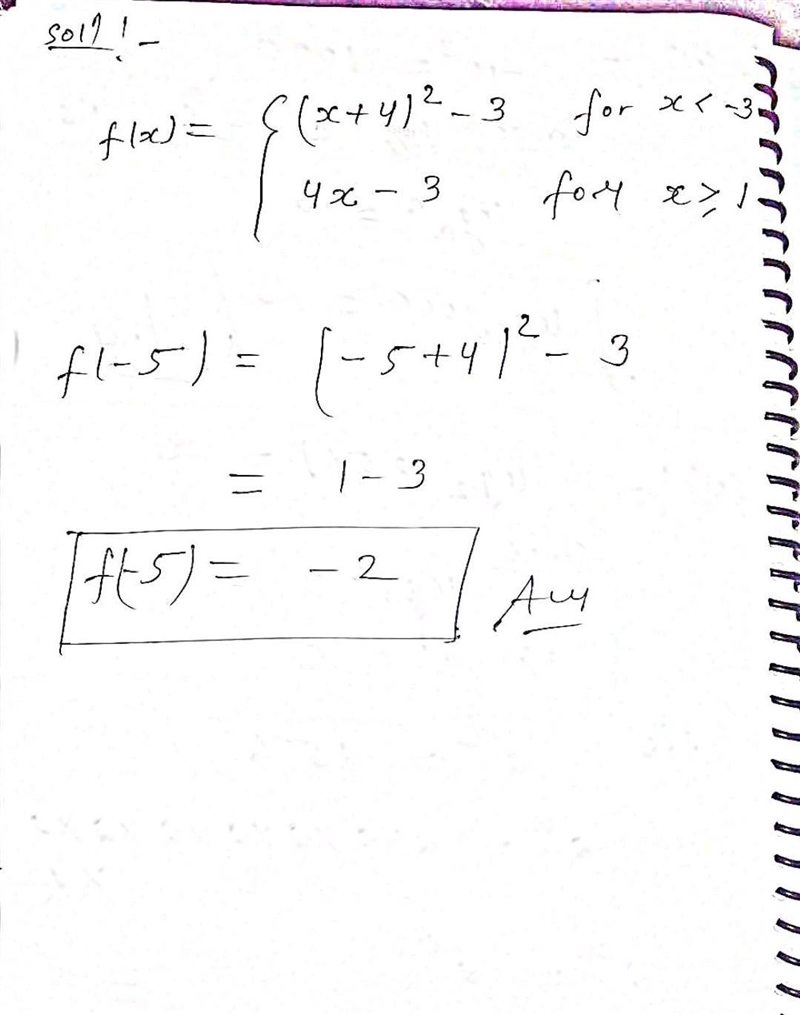 Solⁿ! -
f(x) = { (x+4)² - 3 for x < -3
4x - 3 for x ≥ 1
f(-5) = (-5+4)² - 3
= 1 - 3
f(-5) = -2 Ans